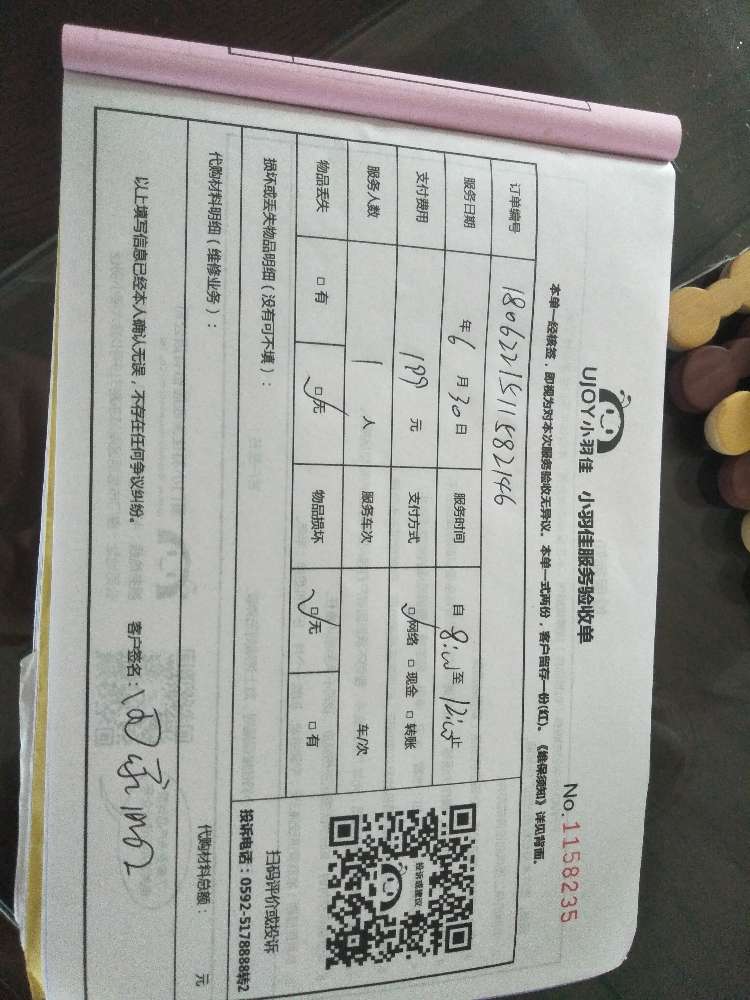 UJOY小羽佳 小羽佳服务验收单
No.1158235
本单一经核签，即视为对本次服务验收无异议。本单一式两份，客户留存一份(红)。《维保须知》详见背面。
订单编号 1806221511582146
服务日期 年6月30日 服务时间 自8:00至12:00止
支付费用 199元 支付方式 网络 现金 转账
服务人数 1人 服务车次 车/次
物品丢失 有 无 物品损坏 无 有
投诉或建议
扫码评价或投诉
投诉电话：0592-5178888转2
损坏或丢失物品明细（没有可不填）：
代购材料明细（维修业务）：
代购材料总额： 元
以上填写信息已经本人确认无误，不存在任何争议纠纷。 客户签名：